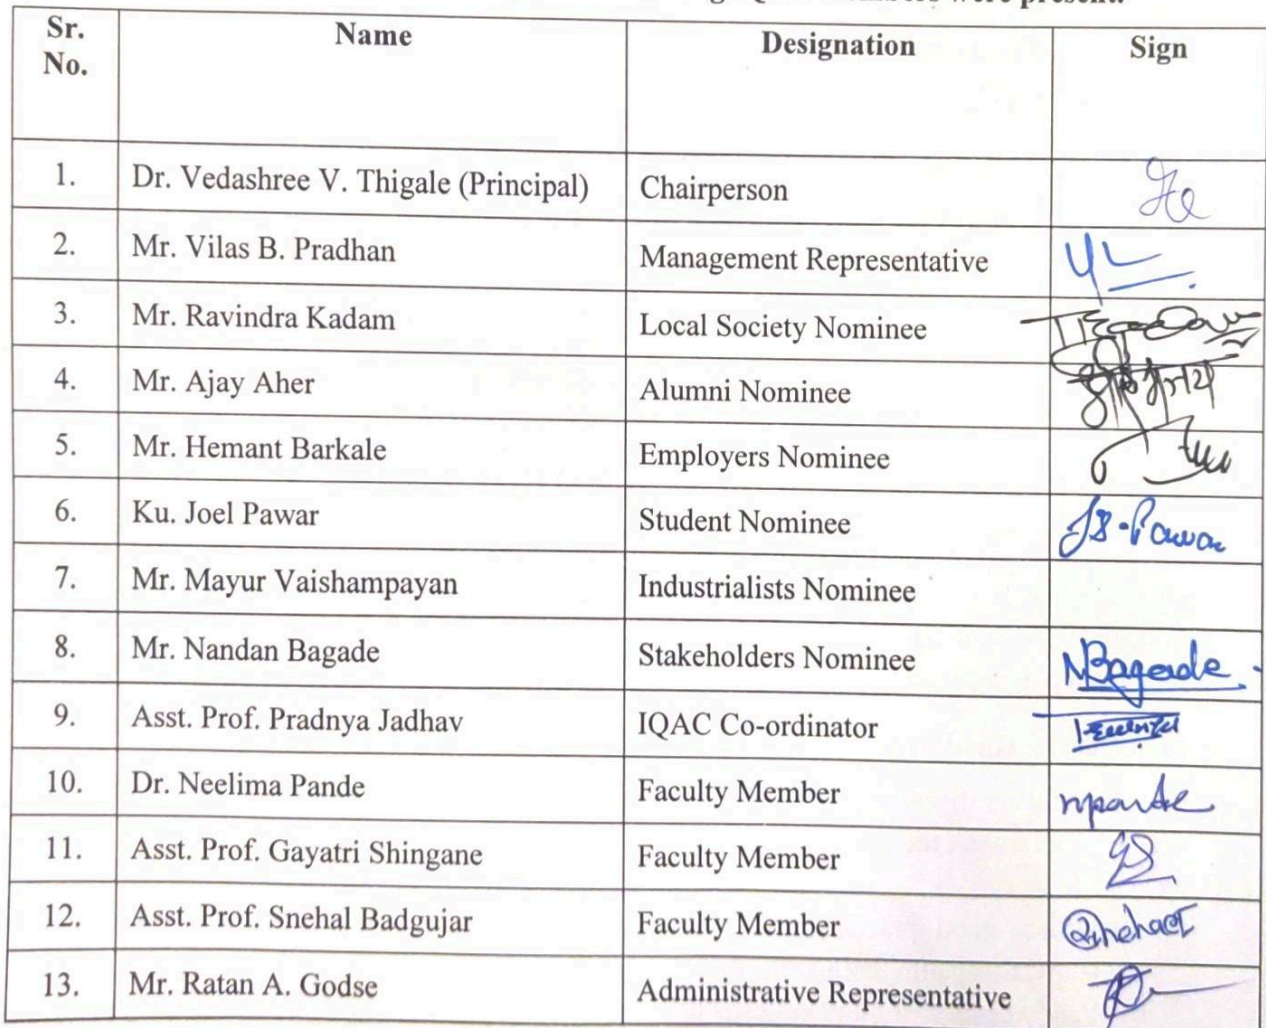 were present.
Sr. No. Name Designation Sign
1. Dr. Vedashree V. Thigale (Principal) Chairperson
2. Mr. Vilas B. Pradhan Management Representative
3. Mr. Ravindra Kadam Local Society Nominee
4. Mr. Ajay Aher Alumni Nominee
5. Mr. Hemant Barkale Employers Nominee
6. Ku. Joel Pawar Student Nominee JS-Pawar
7. Mr. Mayur Vaishampayan Industrialists Nominee
8. Mr. Nandan Bagade Stakeholders Nominee NBagade
9. Asst. Prof. Pradnya Jadhav IQAC Co-ordinator
10. Dr. Neelima Pande Faculty Member npande
11. Asst. Prof. Gayatri Shingane Faculty Member GS
12. Asst. Prof. Snehal Badgujar Faculty Member
13. Mr. Ratan A. Godse Administrative Representative